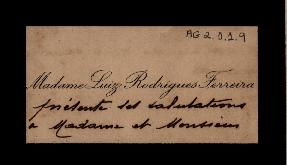 AG 2.0.1.9
Madame Luiz Rodrigues Ferreira
présente ses salutations
à Madame et Monsieur